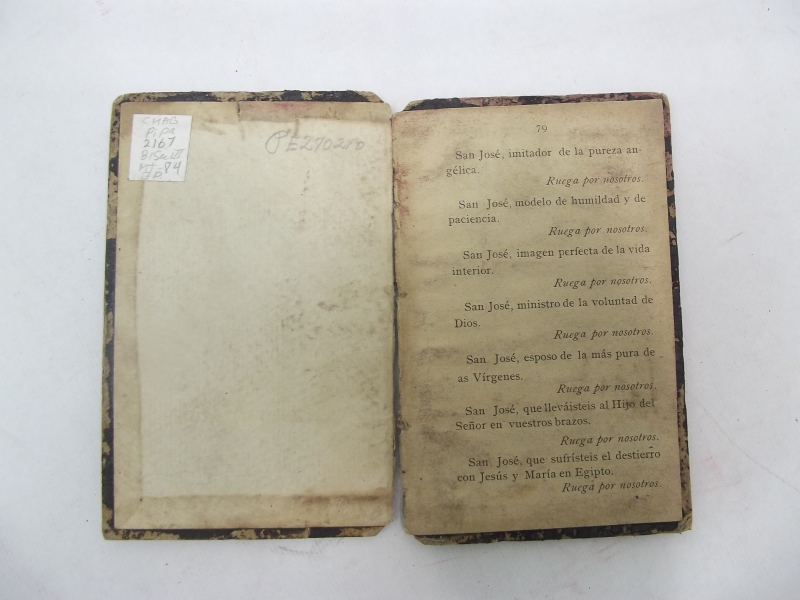 CMAB
PiPa
2167
84
PE270280
79
San José, imitador de la pureza an-
gélica.
Ruega por nosotros.
San José, modelo de humildad y de
paciencia.
Ruega por nosotros.
San José, imagen perfecta de la vida
interior.
Ruega por nosotros.
San José, ministro de la voluntad de
Dios.
Ruega por nosotros.
San José, esposo de la más pura de
as Vírgenes.
Ruega por nosotros.
San José, que lleváisteis al Hijo del
Señor en vuestros brazos.
Ruega por nosotros.
San José, que sufrísteis el destierro
con Jesús y María en Egipto.
Ruega por nosotros.